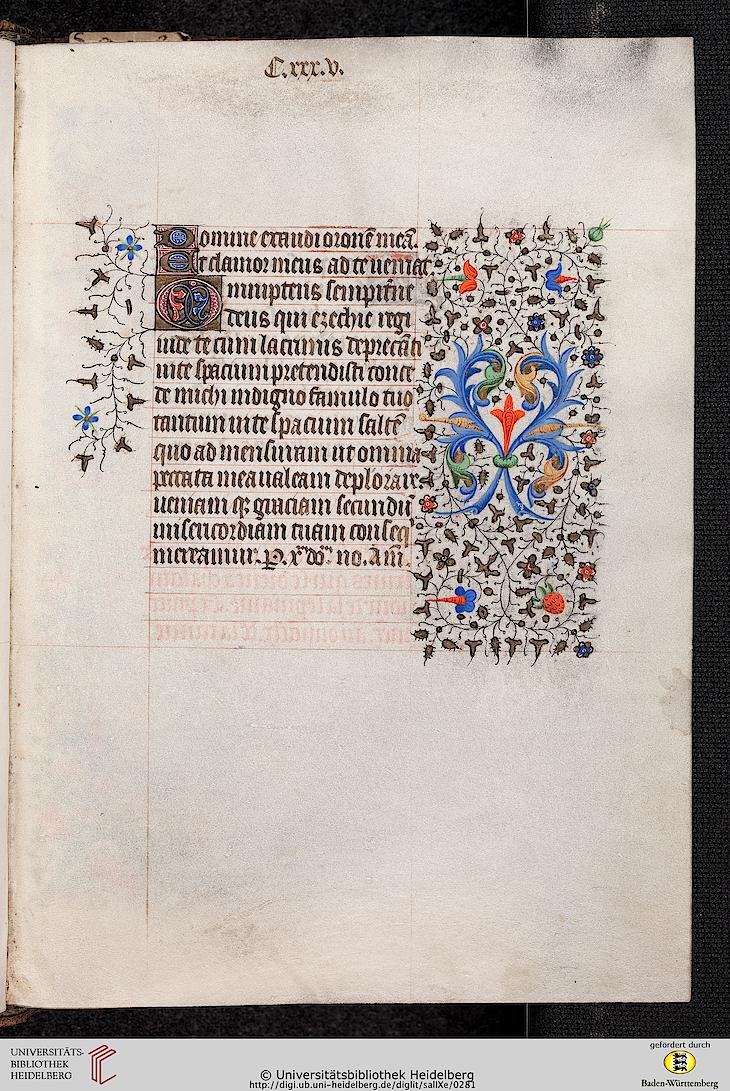 C.xxx.v.
Domine exaudi oronē meā.
Et clamor meus ad te veniat.
Omnipotens sempitne
deus qui ezechie regi
iude te cum lacrimis deprecāti
vite spacium pretendisti conce
de michi indigno famulo tuo
tantum vite spacium saltē
quo ad mensuram ut omnia
peccata mea valeam deplorare
veniam qz graciam secundū
misericordiam tuam conseq
mereamur. P. xm̄ dōm̄ no. Am̄.
UNIVERSITÄTS-
BIBLIOTHEK
HEIDELBERG
© Universitätsbibliothek Heidelberg
http://digi.ub.uni-heidelberg.de/diglit/sallXe/0281
gefördert durch
Baden-Württemberg